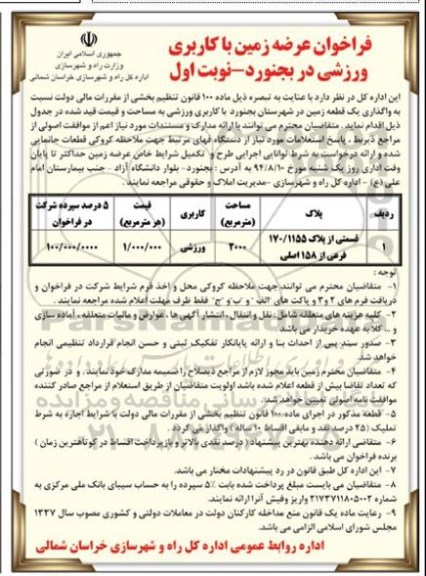 جمهوری اسلامی ایران
وزارت راه و شهرسازی
اداره کل راه و شهرسازی خراسان شمالی
فراخوان عرضه زمین با کاربری
ورزشی در بجنورد-نوبت اول
این اداره کل در نظر دارد با عنایت به تبصره ذیل ماده ۱۰۰ قانون تنظیم بخشی از مقررات مالی دولت نسبت
به واگذاری یک قطعه زمین در شهرستان بجنورد با کاربری ورزشی به مساحت و قیمت قید شده در جدول
ذیل اقدام نماید. متقاضیان محترم می توانند با ارائه مدارک و مستندات مورد نیاز اعم از موافقت اصولی از
مراجع ذیربط، پاسخ استعلامات مورد نیاز از دستگاه های مرتبط جهت ملاحظه کروکی قطعات جانمایی
شده و ارائه درخواست، شرط توانایی اجرایی طرح و تکمیل شرایط خاص عرضه زمین حداکثر تا پایان
وقت اداری روز یک شنبه مورخ ۹۴/۸/۱۰ به آدرس : بجنورد- بلوار دانشگاه آزاد - جنب بیمارستان امام
علی (ع) - اداره کل راه و شهرسازی -مدیریت املاک و حقوقی مراجعه نمایند.
ردیف پلاک مساحت (مترمربع) کاربری قیمت (هر مترمربع) ۵ درصد سپرده شرکت در فراخوان
۱ قسمتی از پلاک ۱۷۰/۱۱۵۵ فرعی از ۱۵۸ اصلی ۲۰۰۰ ورزشی ۱/۰۰۰/۰۰۰ ۱۰۰/۰۰۰/۰۰۰۰
توجه :
۱- متقاضیان محترم می توانند جهت ملاحظه کروکی محل و اخذ فرم شرایط شرکت در فراخوان و
دریافت فرم های ۲ و ۳ و پاکت های "الف" و "ب" و "ج" فقط ظرف مهلت اعلام شده مراجعه نمایند.
۲- کلیه هزینه های متعلقه شامل : نقل و انتقال، انتشار آگهی ها، عوارض و مالیات متعلقه، آماده سازی
و ... کلا به عهده خریدار می باشد.
۳- صدور سند پس از احداث بنا و ارائه پایانکار تفکیک ثبتی و حسن انجام قرارداد تنظیمی انجام
خواهد شد.
۴- متقاضیان محترم زمین باید مجوز لازم از مراجع ذیصلاح را ضمیمه مدارک خود نمایند. و در صورتی
که تعداد تقاضا بیش از قطعه اعلام شده باشد اولویت متقاضیان از طریق استعلام از مراجع صادر کننده
موافقت نامه اصولی تعیین خواهد شد.
۵- قطعه مذکور در اجرای ماده ۱۰۰ قانون تنظیم بخشی از مقررات مالی دولت با شرایط اجاره به شرط
تملیک (۲۵ درصد نقد و مابقی اقساط ۱۰ ساله) واگذار می گردد.
۶- متقاضی ارائه دهنده بهترین پیشنهاد (درصد نقدی بالاتر و بازپرداخت اقساط در کوتاهترین زمان)
برنده فراخوان می باشد.
۷- این اداره کل طبق قانون در رد پیشنهادات مختار می باشد.
۸- متقاضیان می بایست مبلغ پرداخت شده بابت ۵% سپرده را به حساب سیبای بانک ملی مرکزی به
شماره ۲۱۷۳۷۱۱۸۰۵۰۰۲ واریز وفیش آنرا ارائه نمایند.
۹- رعایت ماده یک قانون منع مداخله کارکنان دولت در معاملات دولتی و کشوری مصوب سال ۱۳۳۷
مجلس شورای اسلامی الزامی می باشد.
اداره روابط عمومی اداره کل راه و شهرسازی خراسان شمالی